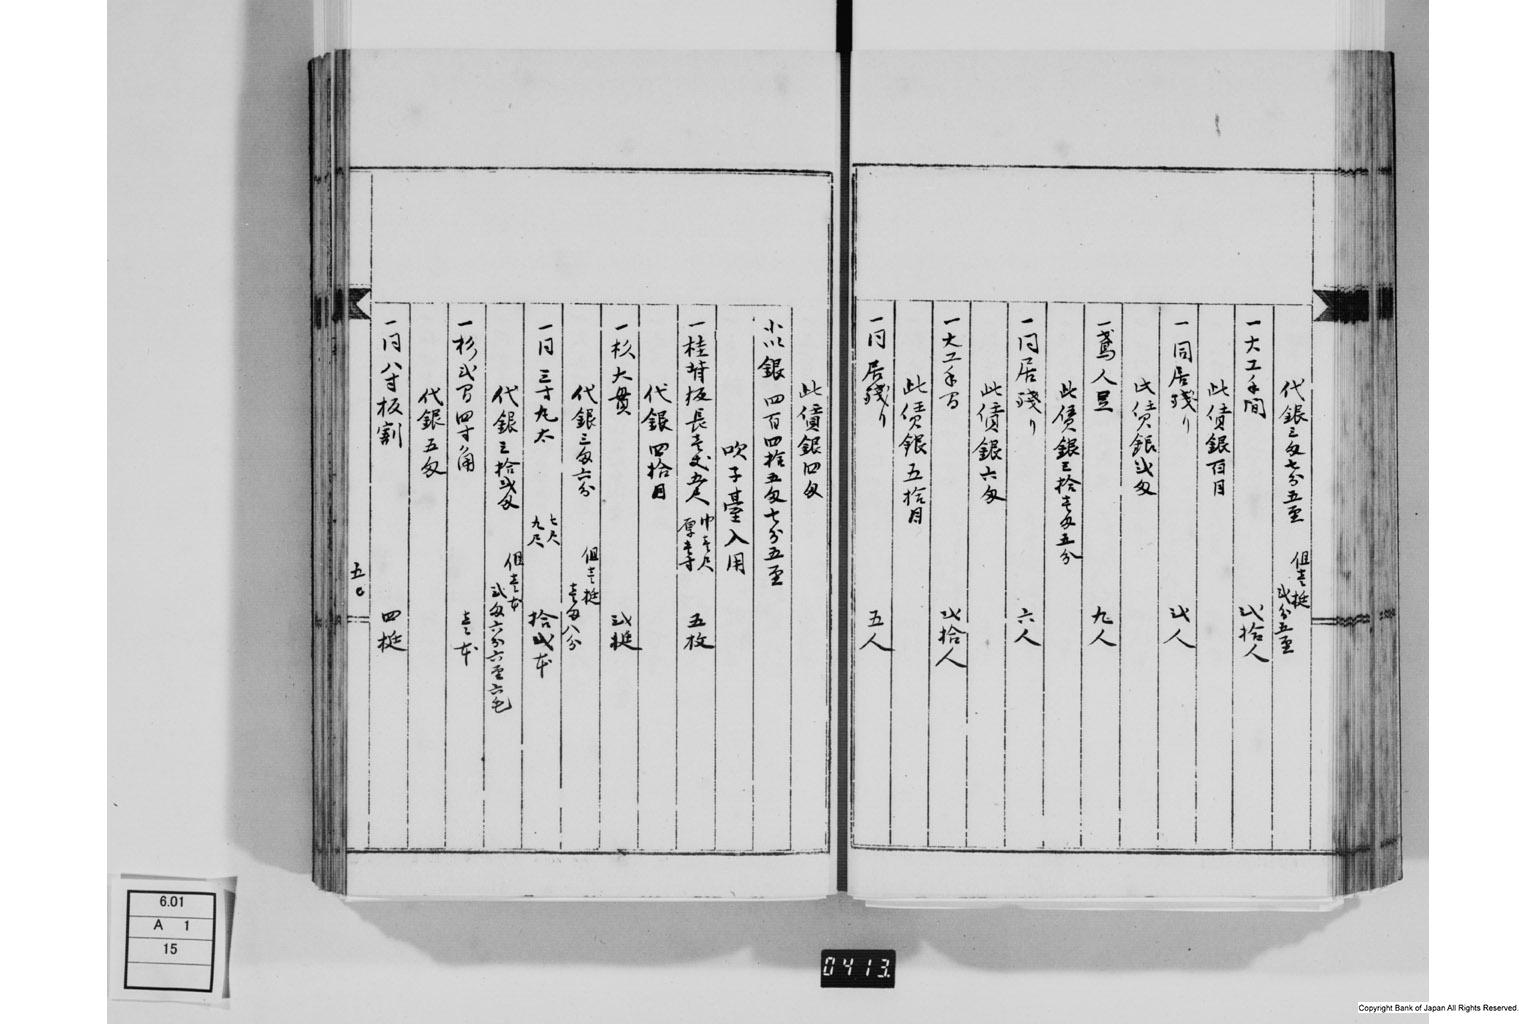 代銀三匁七分五厘 但壱挺
弐分五厘
一大工手間 弐拾人
此賃銀百目
一同居残り 弐人
此賃銀弐匁
一鳶人足 九人
此賃銀三拾壱匁五分
一同居残り 六人
此賃銀六匁
一大工手間 弐拾人
此賃銀五拾目
一同居残り 五人
此賃銀四匁
小以銀四百四拾五匁七分五厘
吹子臺入用
一桂 板長壱丈五尺 巾壱尺
厚壱寸 五枚
代銀四拾目
一杉大貫 弐挺
代銀三匁六分 但壱挺
壱匁八分
一同三寸丸太 七尺
九尺 拾弐本
代銀三拾弐匁 但壱本
弐匁六分六厘六毛
一杉弐間四寸角 壱本
代銀五匁
一同八寸板割 四挺
五〇
6.01
A 1
15
0413.
Copyright Bank of Japan All Rights Reserved.